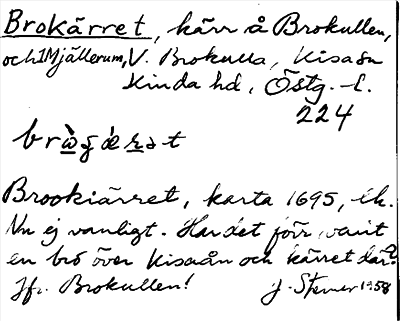 Brokärret, kärr å Brokullen,
och 1 Mjällerum, V. Brokulla, Kisa sn
Kinda hd, Östg. l.
224
Brookiärret, karta 1695, ek.
Nu ej vanligt. Har det förr varit
en bro över Kisaån och kärret där?
Jfr. Brokullen! J. Sterner 1958